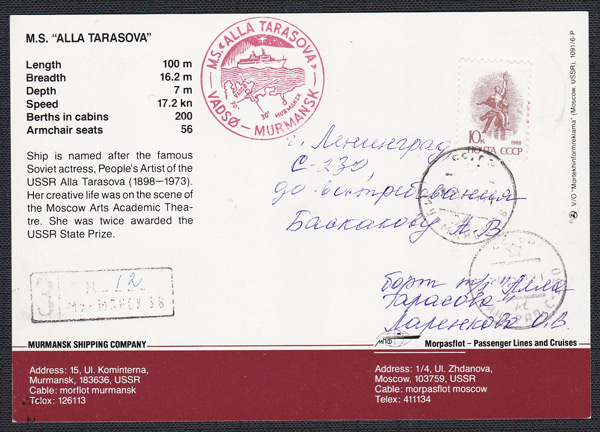 M.S. "ALLA TARASOVA"
Length 100 m
Breadth 16.2 m
Depth 7 m
Speed 17.2 kn
Berths in cabins 200
Armchair seats 56
Ship is named after the famous
Soviet actress, People's Artist of the
USSR Alla Tarasova (1898–1973).
Her creative life was on the scene of
the Moscow Arts Academic Thea-
tre. She was twice awarded the
USSR State Prize.
M.S. «ALLA TARASOVA»
VADSØ – MURMANSK
MURMANSK
10к
1988
ПОЧТА СССР
г. Ленинград
С-230
до востребования
Баскакову А.В
борт т/х "Алла
Тарасова"
Ларенкова О.В.
З
Н 12
Мурманск 38
V/O "Mortekhinformreklama" (Moscow, USSR), 1091/6-P
MURMANSK SHIPPING COMPANY
Address: 15, Ul. Kominterna,
Murmansk, 183636, USSR
Cable: morflot murmansk
Telex: 126113
МПФ
Morpasflot – Passenger Lines and Cruises
Address: 1/4, Ul. Zhdanova,
Moscow, 103759, USSR
Cable: morpasflot moscow
Telex: 411134